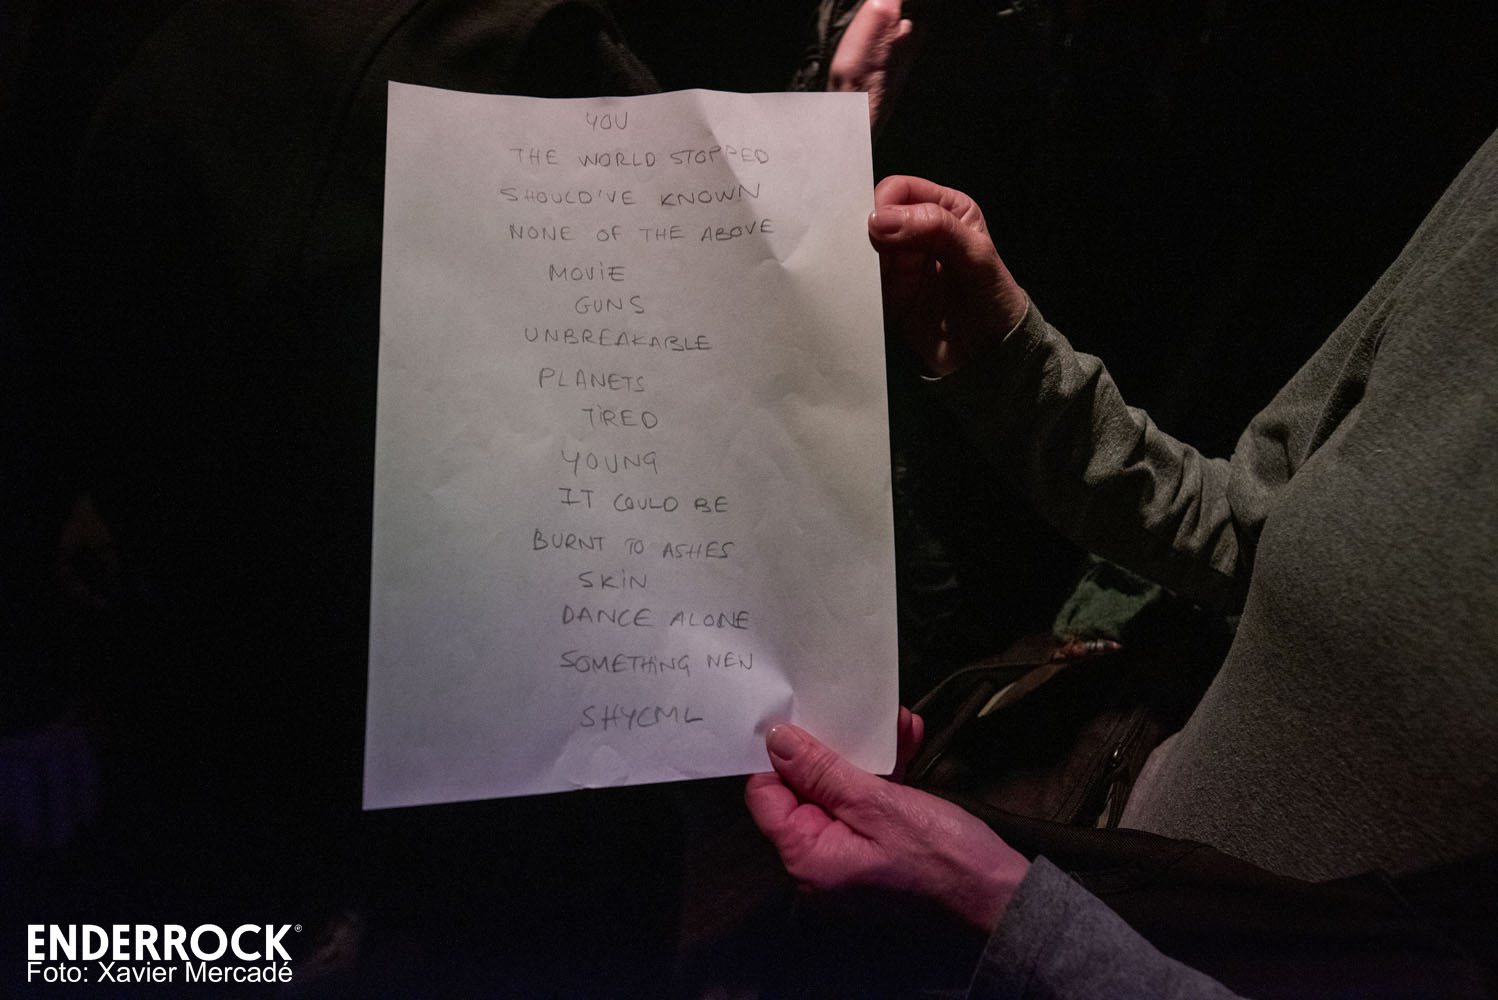 YOU
THE WORLD STOPPED
SHOULD'VE KNOWN
NONE OF THE ABOVE
MOViE
GUNS
UNBREAKABLE
PLANETS
TiRED
YOUNG
IT COULD BE
BURNT TO ASHES
SKiN
DANCE ALONE
SOMETHiNG NEW
SHYCML
ENDERROCK®
Foto: Xavier Mercadé